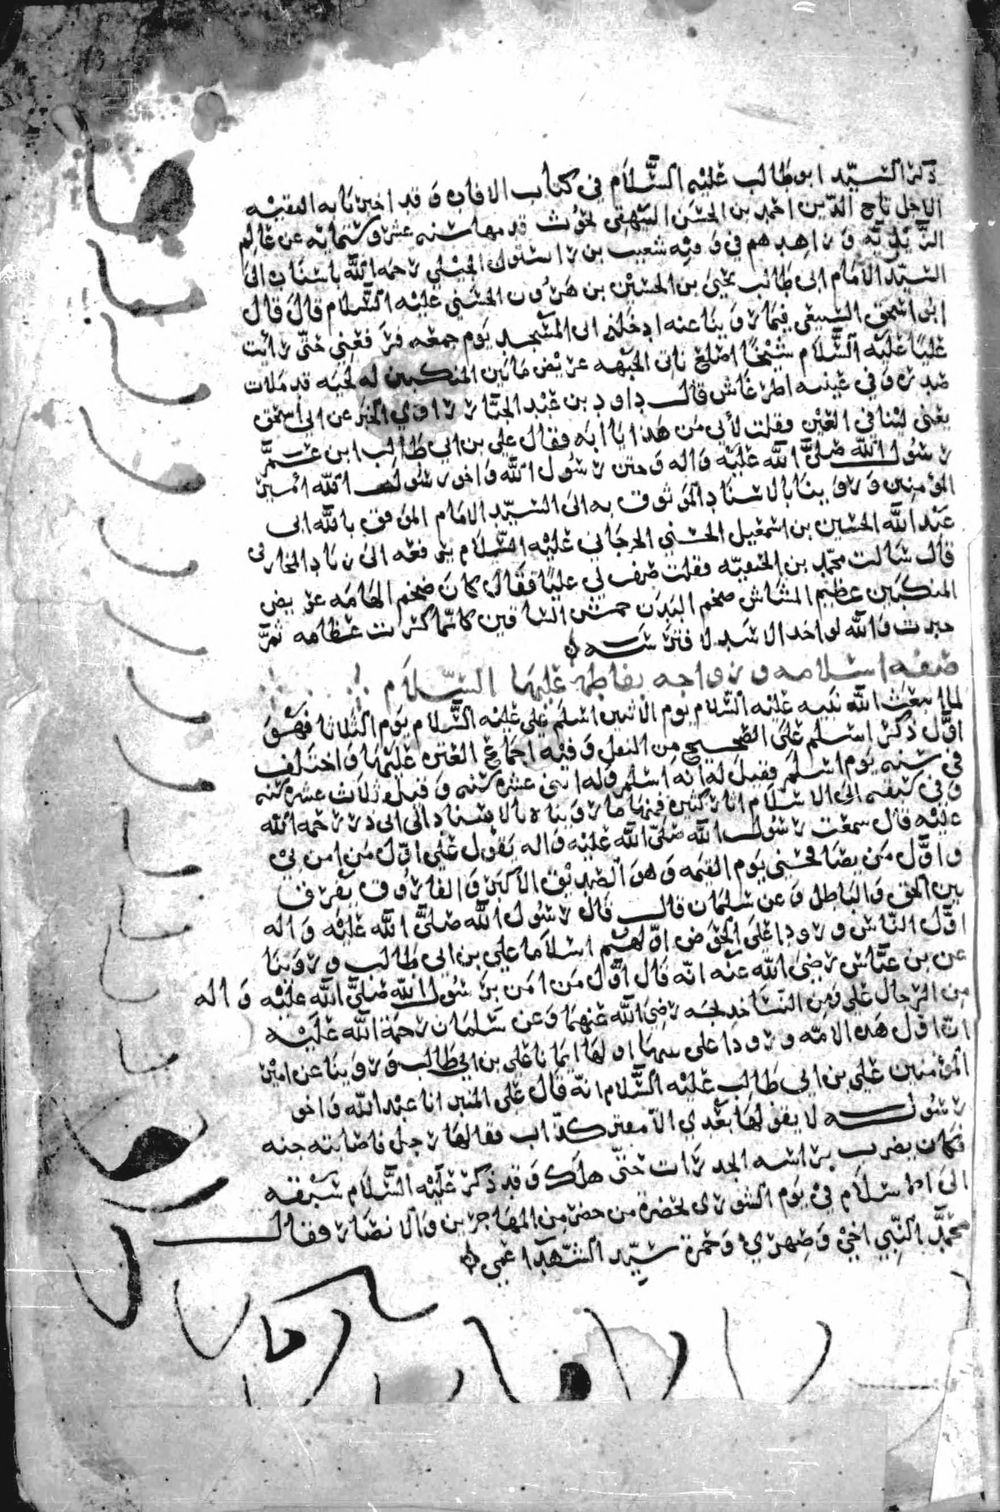 ذكر السيد ابو طالب عليه السلام في كتاب الافاده وقد اخبرنا به الفقيه
الاجل تاج الدين احمد بن الحسن البيهقي بحوث قدمها سنه عشر وستمايه عن عالم
الزيديه وزاهدهم في وقته شعيب بن دا الجيلي رحمه الله باسناده الى
السيد الامام ابى طالب يحيى بن الحسين بن هرون الحسني عليه السلام قال قال
ابى اسحق السبيعي فيما روينا عنه ادخلني ابى المسجد يوم جمعه فرفعني حتى رايت
عليا عليه السلام شيخا اصلع ناتى الجبهه عريض ما بين المنكبين له لحيه قد ملات
صدره وفي عينه اطرغاش قال داود بن عبد الجبار راوي الخبر عن ابى اسحق
يعني لينا في العين فقلت لأبي من هذا يا ابه فقال علي بن ابي طالب ابن عم
رسول الله صلى الله عليه واله وختن رسول الله واخو رسول الله امير
المؤمنين وروينا بالاسناد الموثوق به الى السيد الامام الموفق بالله ابى
عبد الله الحسين بن اسمعيل الحسني الجرجاني عليه السلام يرفعه الى زياد المحاربى
قال سالت محمد بن الحنفيه فقلت صف لي عليا فقال كان ضخم الهامه عريض
المنكبين عظيم المشاش ضخم البدن حمش الساقين كانما كسرت عظامه ثم
جبرت والله لو اخذ الاسد لافترسه
صفه اسلامه وزواجه بفاطمه عليها السلام
لما ابتعث الله نبيه عليه السلام يوم الاثنين اسلم علي عليه السلام يوم الثلاثا فهو
اول ذكر اسلم على الصحيح من النقل وفيه اجماع العتره عليهم واختلف
في سنه يوم اسلم فقيل له انه اسلم وله اثنى عشره سنه وقيل ثلاث عشره سنه
وفي سبقه الى الاسلام اثار كثيره فمنها ما رويناه بالاسناد الى ابى ذر رحمه الله
عليه قال سمعت رسول الله صلى الله عليه واله يقول علي اول من امن بي
واول من يصافحني يوم القيمه وهو الصديق الاكبر والفاروق يفرق
بين الحق والباطل وعن سلمان قال قال رسول الله صلى الله عليه واله
اول الناس ورودا على الحوض اولهم اسلاما علي بن ابى طالب وروينا
عن بن عباس رضى الله عنه انه قال اول من امن برسول الله صلى الله عليه واله
من الرجال علي ومن النسا خديجه رضى الله عنهما وعن سلمان رحمة الله عليه
ان اول هذه الامه ورودا على نبيها اولها ايمانا علي بن ابى طالب وروينا عن امير
المؤمنين علي بن ابى طالب عليه السلام انه قال على المنبر انا عبد الله واخو
رسوله لا يقولها بعدي الا مفتر كذاب فقالها رجل فاصابته جنه
فكان يضرب براسه الجدرات حتى هلك وقد ذكر عليه السلام سبقه
الى الاسلام في يوم الشورى بحضرة من حضر من المهاجرين والانصار فقال
محمد النبي اخي وصهري وحمزة سيد الشهدا عمي